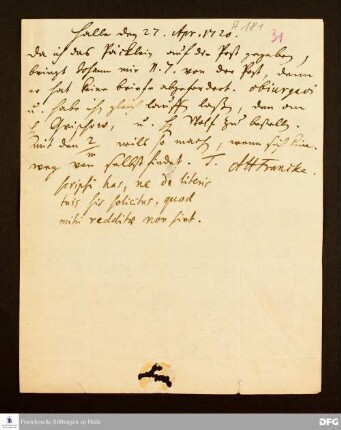 A 181
31
Halle den 27. Apr. 1720.
Da ich das Päcklein auf die Post gegeben,
bringt Johann mir N. 7. von der Post, denn
er hat keine briefe abgefordert. obiurgavi
u. habe ich gleich lauffen laßen, den an
H. Grischow, u. H. Wolf zu bestellen.
mit den wills so machen, wenn sich keine
weg von selbst findet. T. AHFrancke.
scripsi has, ne de literis
tuis sis solicitus, quod
mihi redditae non sint.
Franckesche Stiftungen zu Halle
DFG